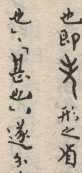 也即 形之省
也」、「甚也」、遂